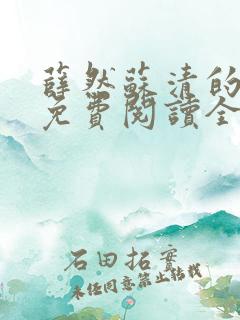 薛然蘇清的
免費閱讀全
石田拓實
未经同意禁止转载